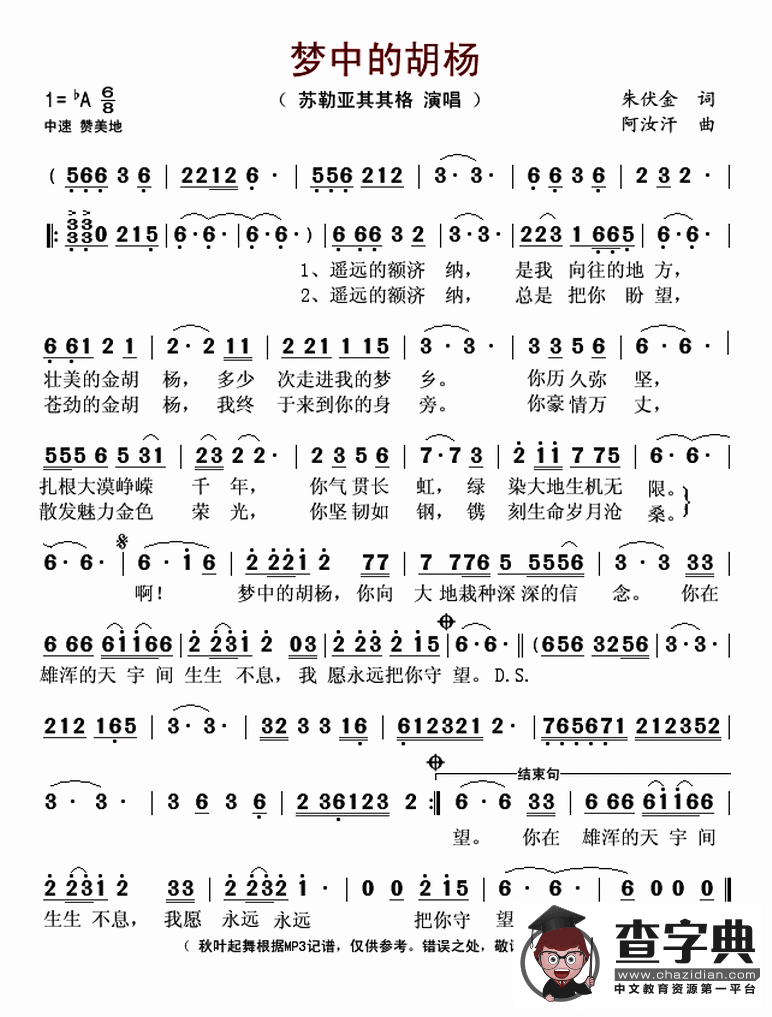 梦中的胡杨
1=♭A 6/8
（ 苏勒亚其其格 演唱 ）
朱伏金 词
中速 赞美地
阿汝汗 曲
( 566 3 6 | 2212 6 · | 556 212 | 3 · 3 · | 6 63 6 | 2 3 2 · |
‖: 33 33 0 215 | 6 · 6 · | 6 · 6 · ) | 6 66 3 2 | 3 · 3 · | 223 1 665 | 6 · 6 · |
1、遥远的额济 纳， 是我 向往的地 方，
2、遥远的额济 纳， 总是 把你 盼 望，
6 61 2 1 | 2 · 2 11 | 2 21 1 15 | 3 · 3 · | 3 35 2 1 | 6 · 6 · |
壮美的金胡 杨， 多少 次走进我的梦 乡。 你历 久弥 坚，
苍劲的金胡 杨， 我终 于来到你的身 旁。 你豪 情万 丈，
555 6 5 31 | 23 2 2 · | 2 3 5 6 | 7 · 7 3 | 2 11 7 75 | 6 · 6 · |
扎根大漠峥嵘 千 年， 你气 贯长 虹，绿 染大地生机无 限。
散发魅力金色 荣 光， 你坚 韧如 钢，镌 刻生命岁月沧 桑。
6 · 6 · | 6 · i 6 | 2 22i 2 77 | 7 776 5 5556 | 3 · 3 33 |
啊！ 梦中的胡杨，你向 大 地栽种深 深的信 念。 你在
6 66 6ii66 | 2 23i 2 03 | 2 23 2 i5 | 6 · 6 · ‖ (656 3256 | 3 · 3 · |
雄浑的天 宇 间 生生 不息，我 愿永远把你守 望。D.S.
212 165 | 3 · 3 · | 32 3 3 16 | 612321 2 · | 765671 212352 |
结束句
3 · 3 · | 3 6 3 6 | 2 36123 2 :‖ 6 · 6 33 | 6 66 6ii66 |
望。 你在 雄浑的天 宇 间
2 23i 2 33 | 2 23 2 i · | 0 0 2 i5 | 6 · 6 · | 6 · 6 0 ‖
生生 不息， 我愿 永远 永远 把你守 望
（ 秋叶起舞根据MP3记谱，仅供参考。错误之处，敬
查字典
www.chazidian.com
中文教育资源第一平台